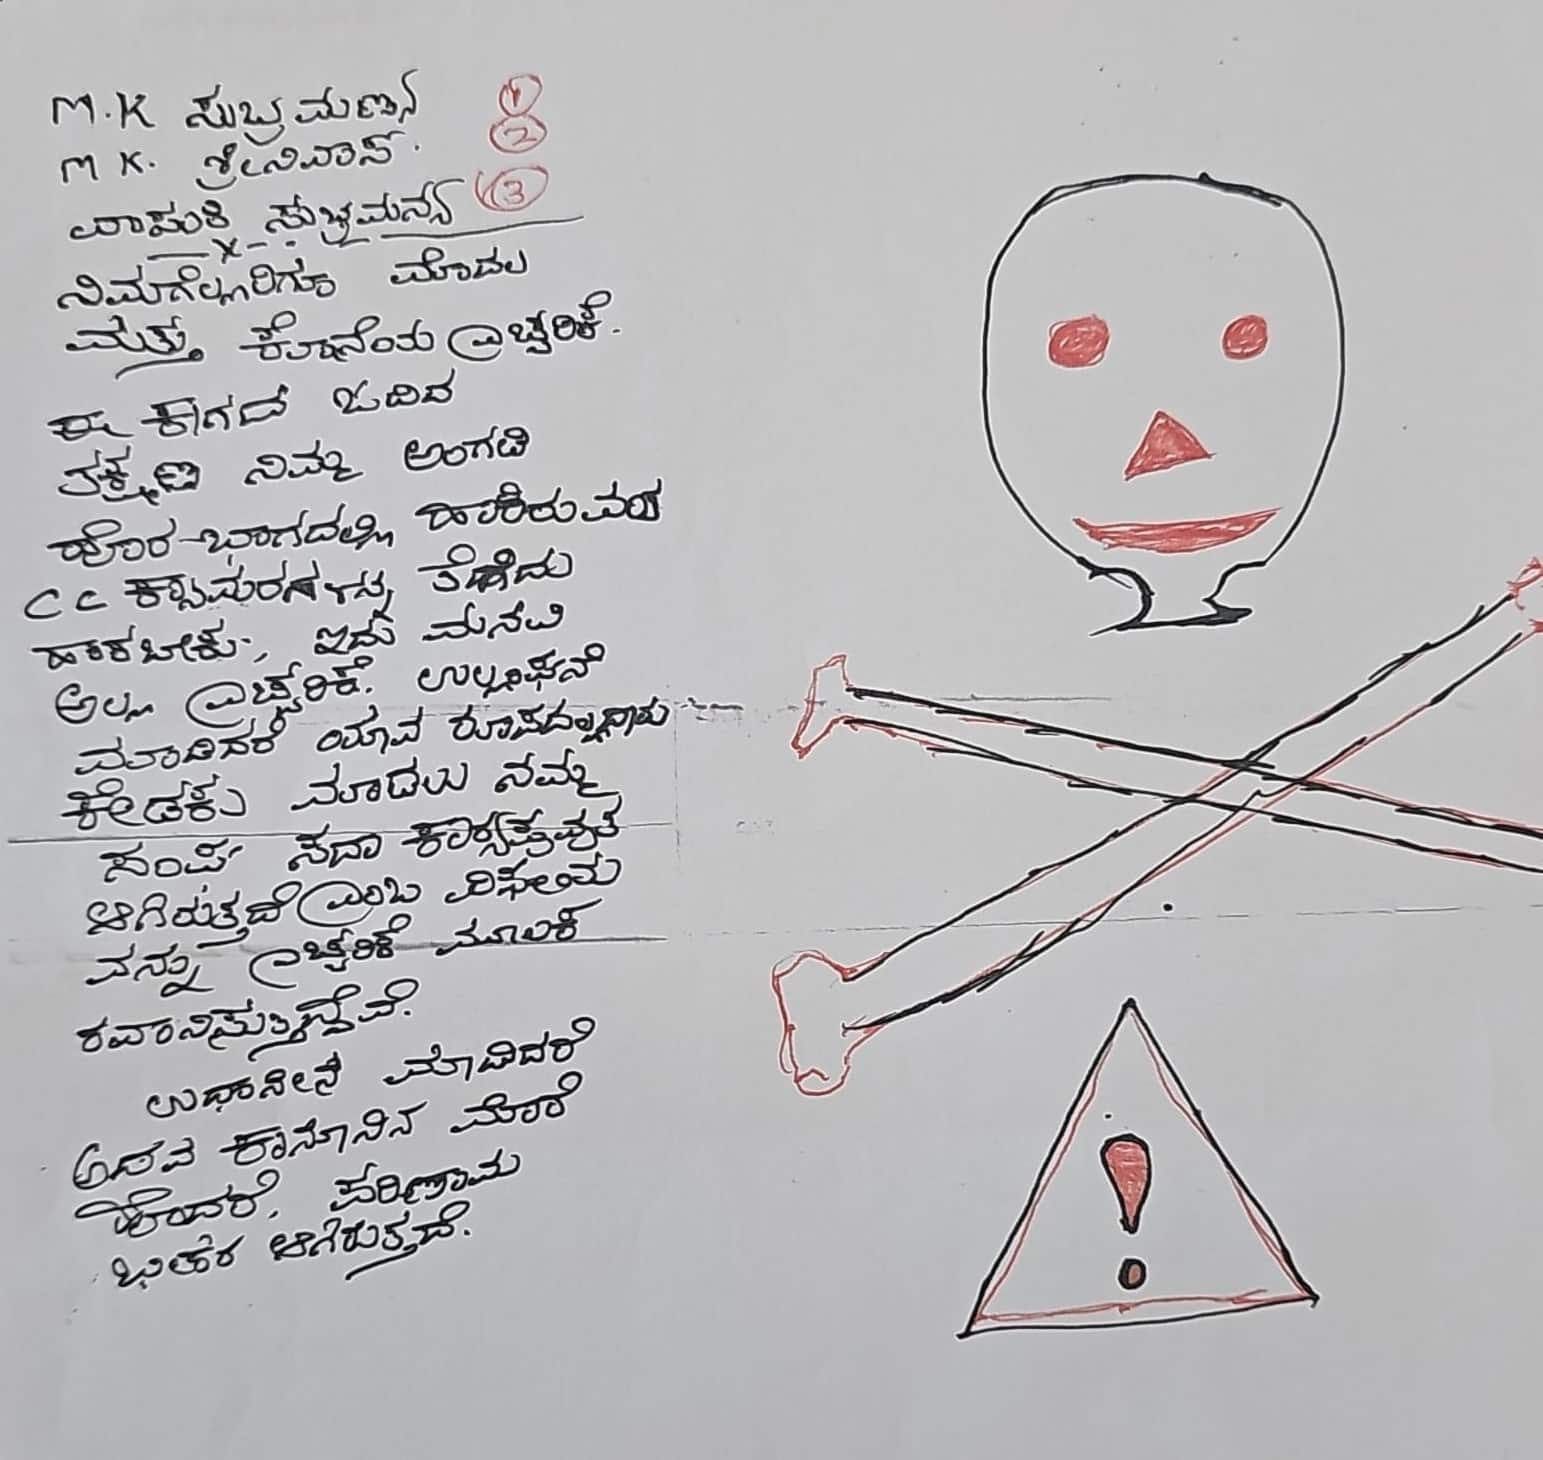 M.K ಸುಬ್ರಮಣಿನ 1
M K. ಶ್ರೀನಿವಾಸ್. 2
ವಾಸುಕಿ ಸುಬ್ರಮನ್ಯ 3
ನಿಮಗೆಲ್ಲರಿಗೂ ಮೊದಲ
ಮತ್ತು ಕೊನೆಯ ಎಚ್ಚರಿಕೆ.
ಈ ಕಾಗದ ಓದಿದ
ತಕ್ಷಣ ನಿಮ್ಮ ಅಂಗಡಿ
ಹೊರ ಭಾಗದಲ್ಲಿ ಹಾಕಿರುವಂತ
CC ಕ್ಯಾಮರಗಳನ್ನು ತೆಗೆದು
ಹಾಕಬೇಕು, ಇದು ಮನವಿ
ಅಲ್ಲ ಎಚ್ಚರಿಕೆ. ಉಲ್ಲಂಘನೆ
ಮಾಡಿದರೆ ಯಾವ ರೂಪದಲ್ಲಾದರು
ಕೇಡಕು ಮಾಡಲು ನಮ್ಮ
ಸಂಘ ಸದಾ ಕಾರ್ಯಪ್ರವೃತ
ಆಗಿರುತ್ತದೆ ಎಂಬ
ವನ್ನು ಎಚ್ಚರಿಕೆ ಮೂಲಕ
ರವಾನಿಸುತ್ತಿದ್ದೇವೆ.
ಉಧಾಸೀನ ಮಾಡಿದರೆ
ಅಥವ ಕಾನೂನಿನ ಮೊರೆ
ಹೋದರೆ, ಪರಿಣಾಮ
ಭೀಕರ ಆಗಿರುತ್ತದೆ.